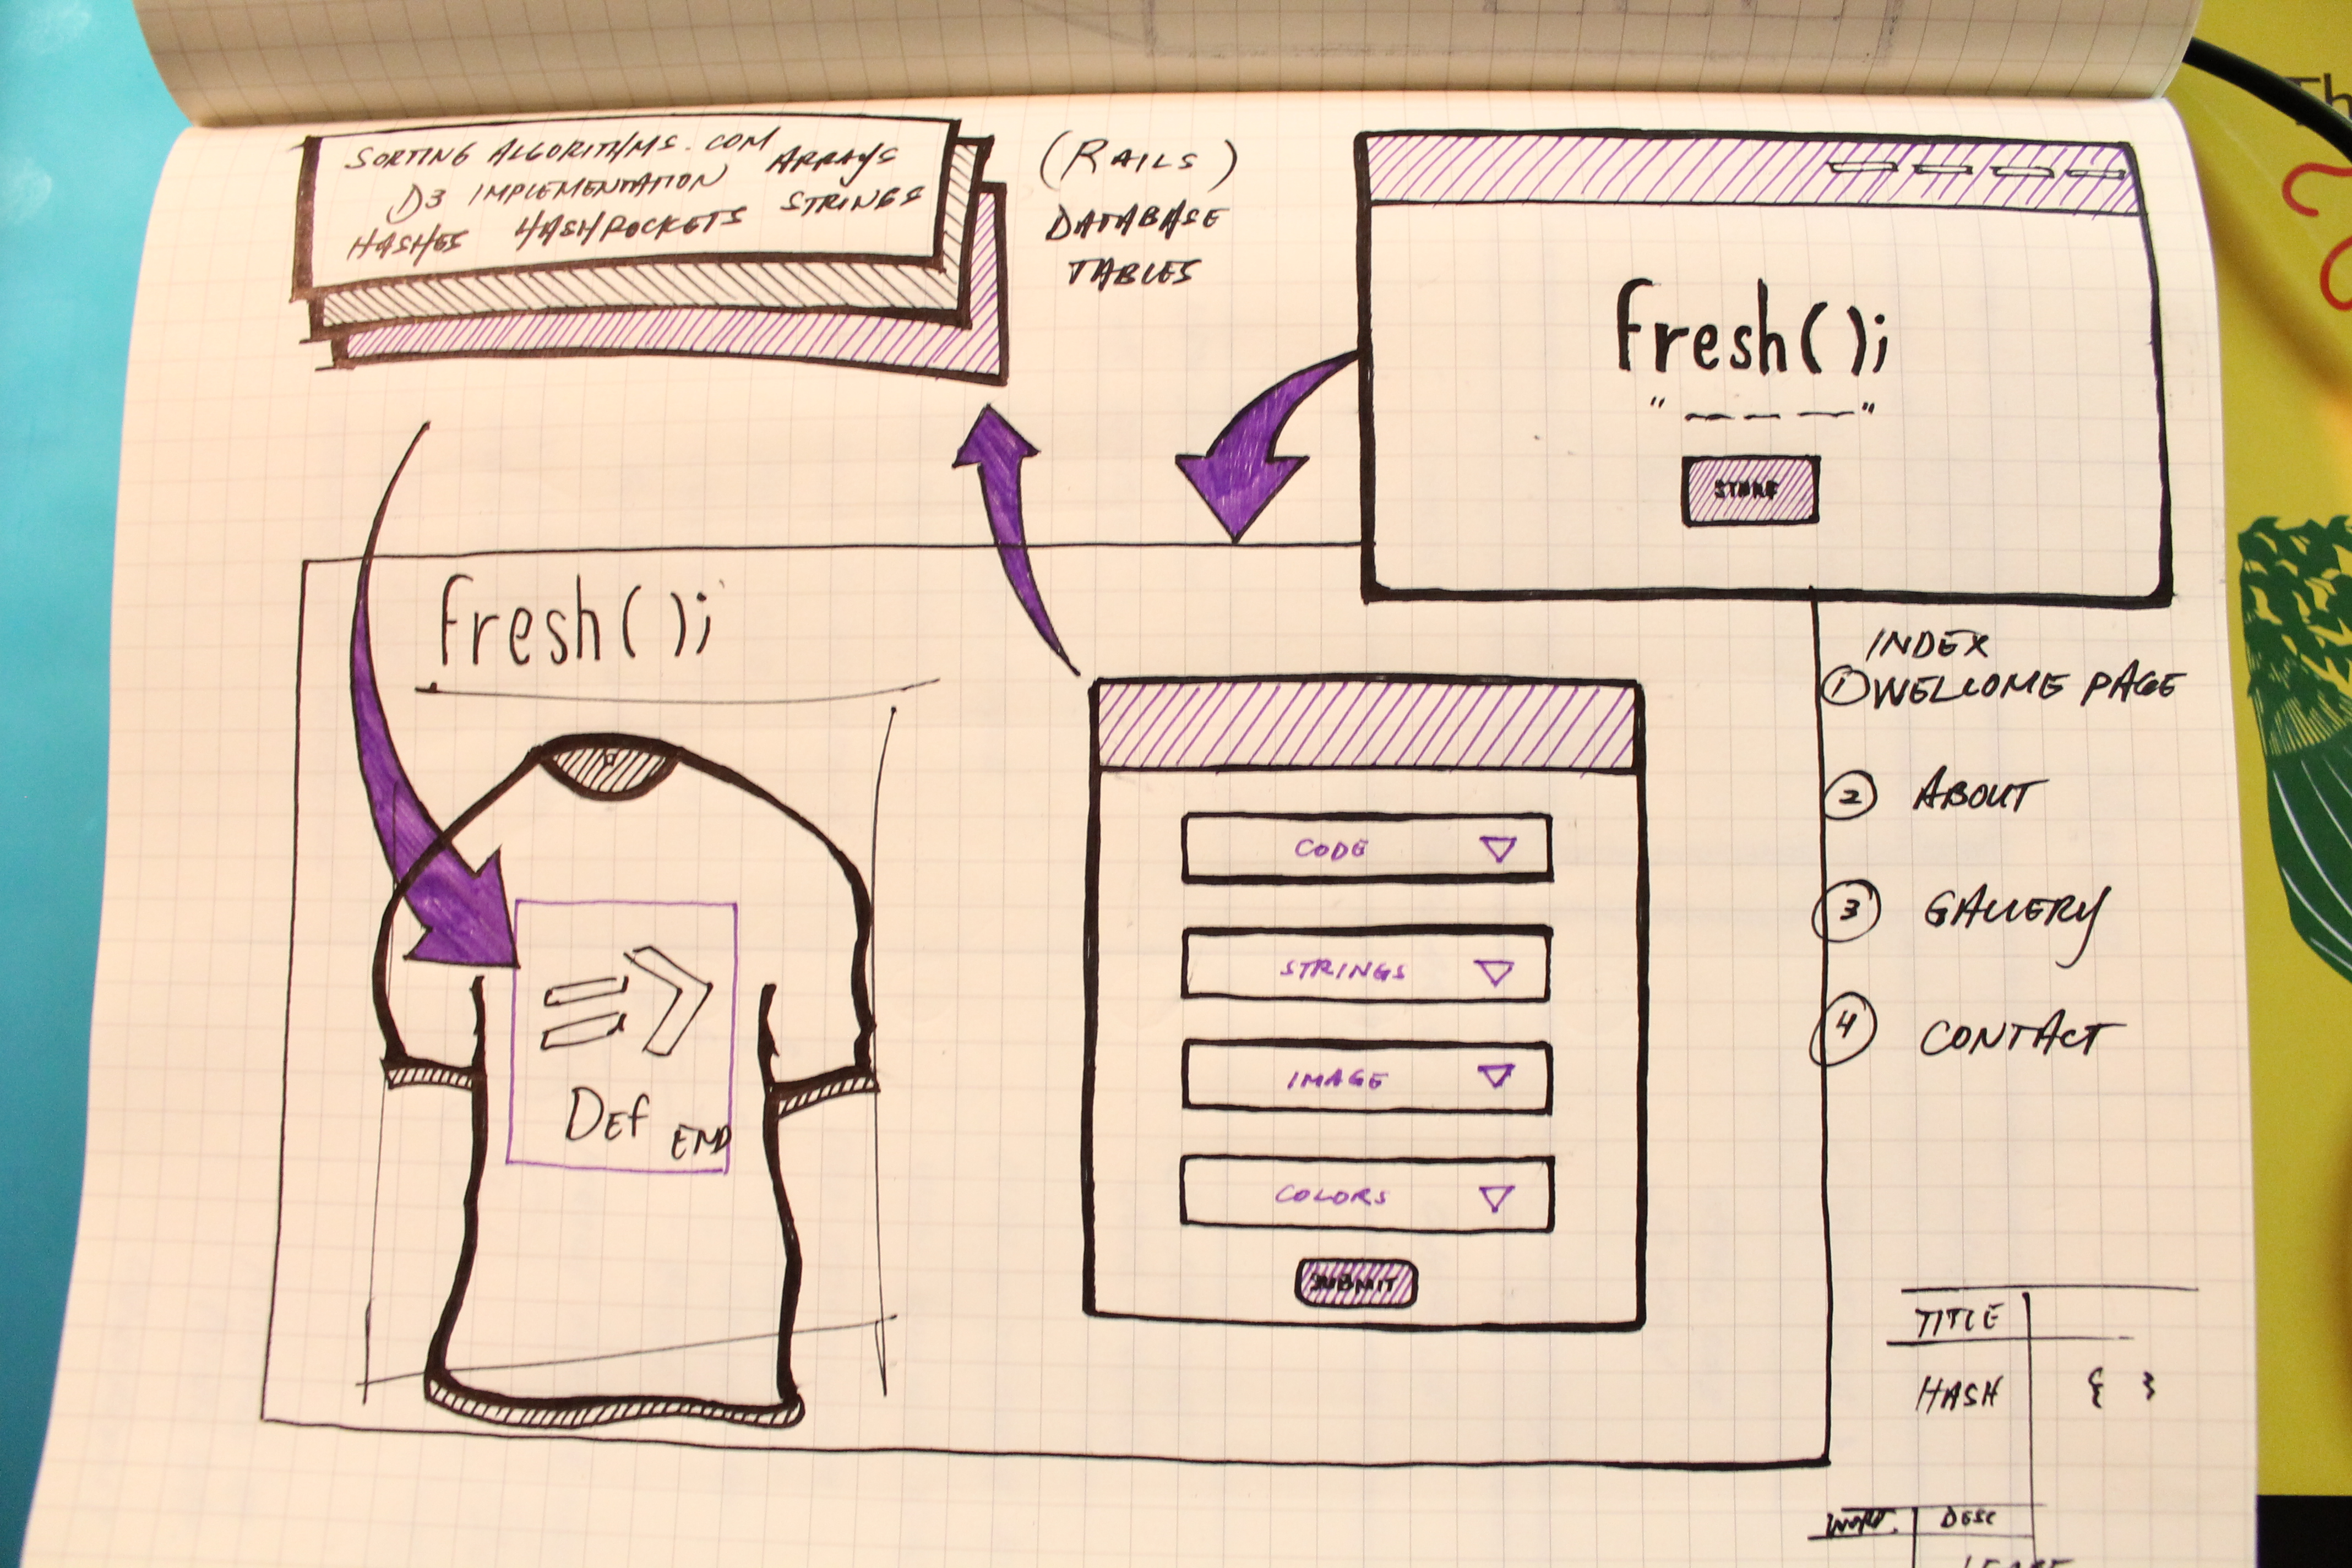 SORTING ALGORITHMS.COM ARRAYS
D3 IMPLEMENTATION STRINGS
HASHES HASHROCKETS
(RAILS)
DATABASE
TABLES
fresh();
" — — — "
fresh();
DEF END
CODE
STRINGS
IMAGE
COLORS
SUBMIT
INDEX
① WELCOME PAGE
② ABOUT
③ GALLERY
④ CONTACT
TITLE
HASH { }
DESC
Th